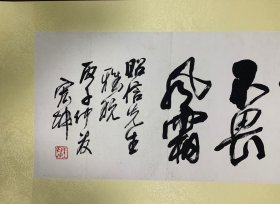 不畏
风霜
昭信先生
雅玩
丙子仲夏
宏坤